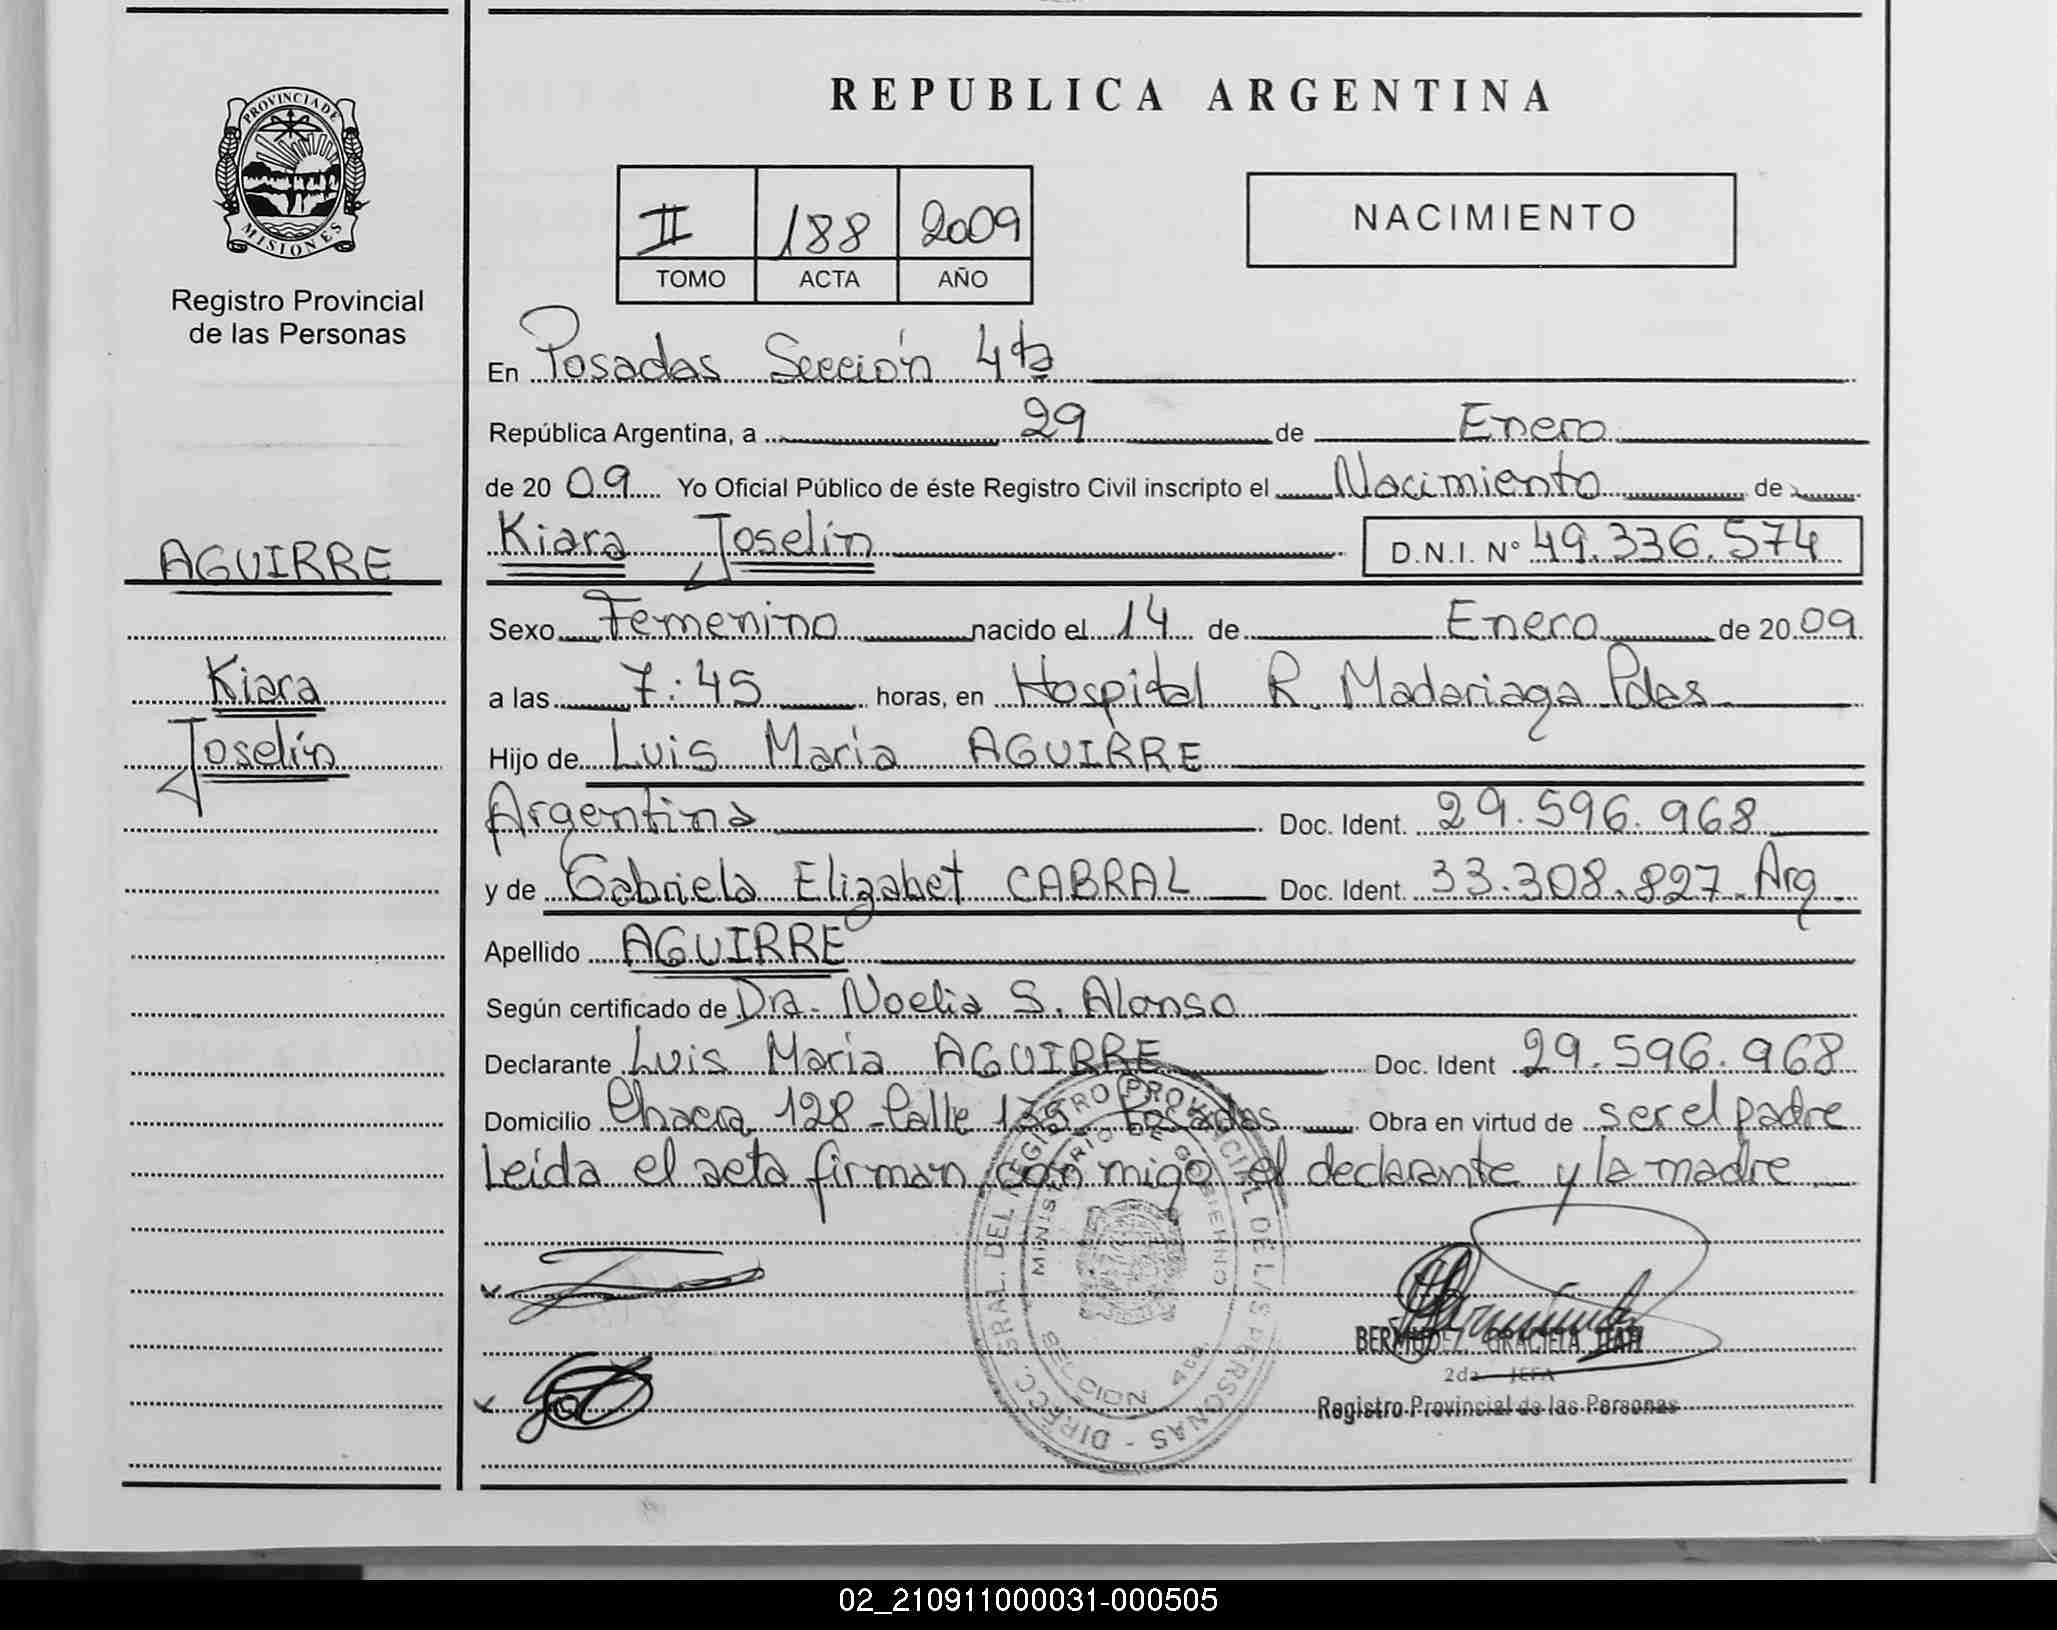 REPUBLICA ARGENTINA
PROVINCIA DE
MISIONES
Registro Provincial
de las Personas
II 188 2009
TOMO ACTA AÑO
NACIMIENTO
En Posadas Sección 4ta
República Argentina, a 29 de Enero
de 20 09 Yo Oficial Público de éste Registro Civil inscripto el Nacimiento de
Kiara Joselín D.N.I. N° 49.336.574
AGUIRRE
Kiara
Joselín
Sexo Femenino nacido el 14 de Enero de 20 09
a las 7:45 horas, en Hospital R. Madariaga Pdas.
Hijo de Luis María AGUIRRE
Argentina Doc. Ident. 29.596.968
y de Gabriela Elizabet CABRAL Doc. Ident. 33.308.827 Arg
Apellido AGUIRRE
Según certificado de Dra. Noelia S. Alonso
Declarante Luis María AGUIRRE Doc. Ident 29.596.968
Domicilio Chacra 128 - Calle 135 Posadas Obra en virtud de ser el padre
Leída el acta firman con migo el declarante y la madre
DIRECC. GRAL. DEL REGISTRO PROVINCIAL DE LAS PERSONAS
MINISTERIO DE GOBIERNO
SECCION 4ta.
BERMUDEZ GRACIELA ITATI
2da JEFA
Registro Provincial de las Personas
02_210911000031-000505